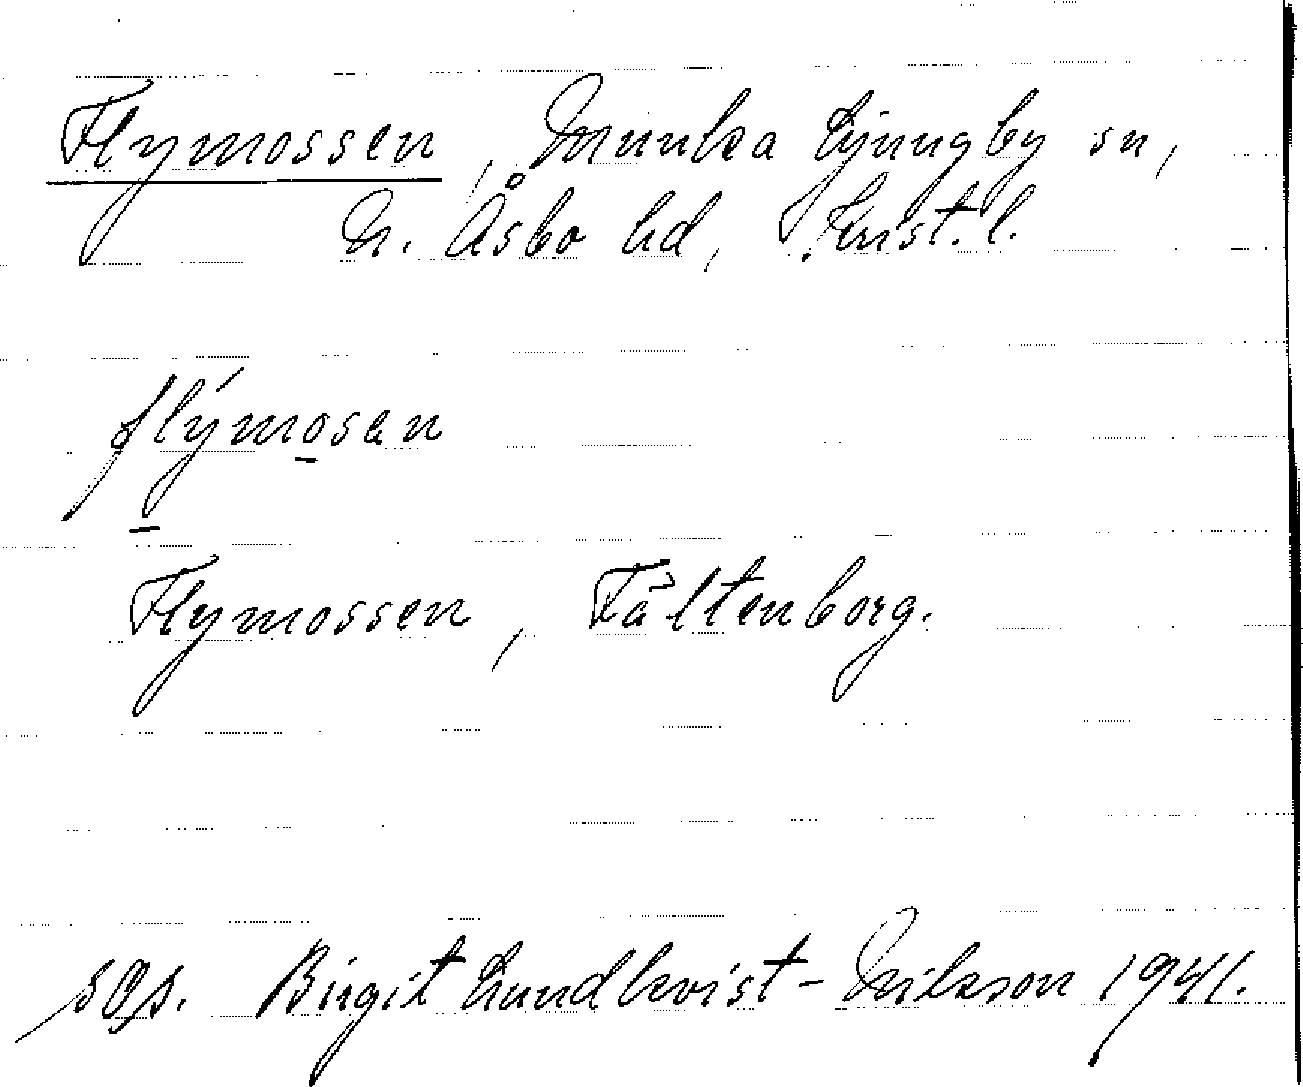 Flymossen, Munka Ljungby sn,
N. Åsbo hd, Krist. l.
flýmosan
Flymossen, Fältenborg.
sgs. Birgit Lundkvist-Nilsson 1941.